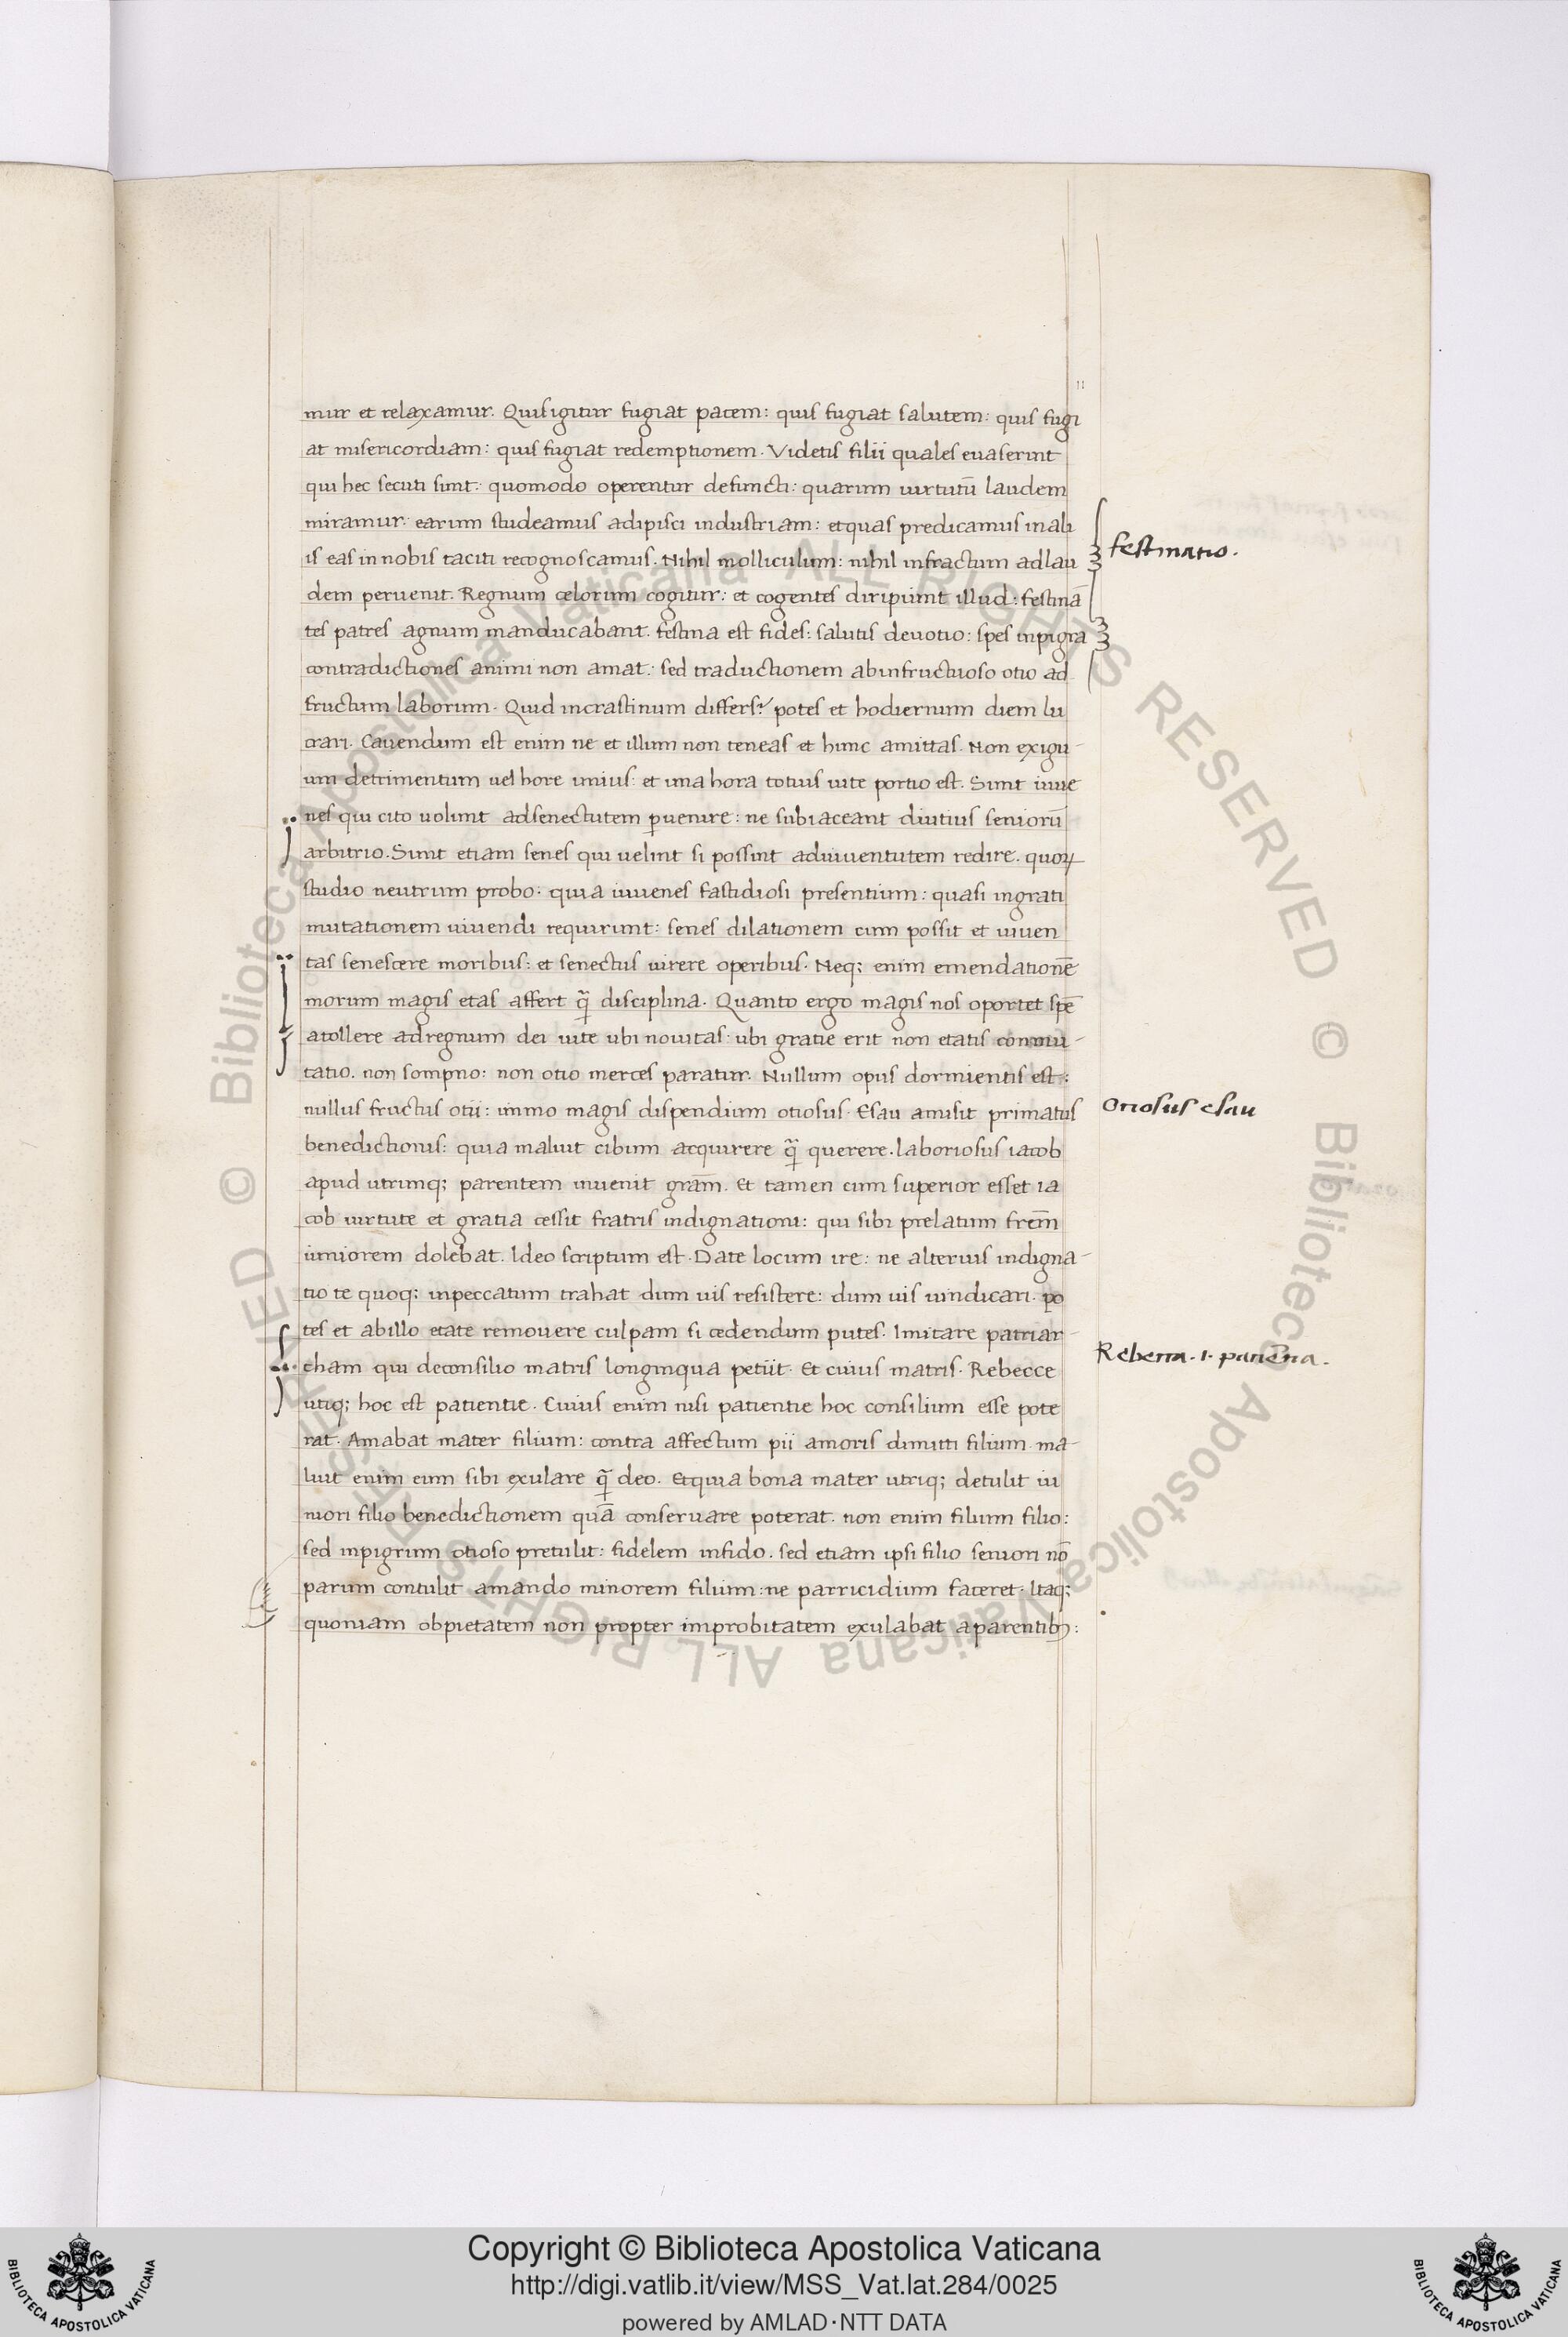 11
mur et relaxamur. Quis igitur fugiat pacem: quis fugiat salutem: quis fugi
at misericordiam: quis fugiat redemptionem. Videtis filii quales euaserint
qui hec secuti sunt: quomodo operentur defuncti: quarum uirtutū laudem
miramur: earum studeamus adipisci industriam: et quas predicamus in ali
is eas in nobis taciti recognoscamus. Nihil molliculum: nihil infractum ad lau
dem peruenit. Regnum celorum cogitur: et cogentes diripiunt illud: festinā
tes patres agnum manducabant. festina est fides: salutis deuotio: spes inpigra
contradictiones animi non amat: sed traductionem ab infructuoso otio ad
fructum laborum. Quid in crastinum differs? potes et hodiernum diem lu
crari. Cauendum est enim ne et illum non teneas et hunc amittas. Non exigu-
um detrimentum uel hore unius: et una hora totius uite portio est. Sunt iuue
nes qui cito uolunt ad senectutem ꝑuenire: ne subiaceant diutius seniorū
arbitrio. Sunt etiam senes qui uelint si possint ad iuuentutem redire. quoꝝ
studio neutrum probo. quia iuuenes fastidiosi presentium: quasi ingrati
mutationem uiuendi requirunt: senes dilationem cum possit et iuuen
tas senescere moribus: et senectus uirere operibus. Neq; enim emendationē
morum magis etas affert q̄ disciplina. Quanto ergo magis nos oportet spē
atollere ad regnum dei uite ubi nouitas: ubi gratie erit non etatis conmu-
tatio. non sompno: non otio merces paratur. Nullum opus dormientis est:
nullus fructus otii: immo magis dispendium otiosus. Esau amisit primatus
benedictionis: quia maluit cibum acquirere q̄ querere. laboriosus iacob
apud utrunq; parentem inuenit gram̄. Et tamen cum superior esset ia
cob uirtute et gratia cessit fratris indignationi: qui sibi prelatum frem̄
iuniorem dolebat. Ideo scriptum est. Date locum ire: ne alterius indigna-
tio te quoq; in peccatum trahat dum uis resistere: dum uis uindicari. po
tes et ab illo etate remouere culpam si cedendum putes. Imitare patriar-
cham qui de consilio matris longinqua petiit. Et cuius matris. Rebecce
utiq; hoc est patientie. Cuius enim nisi patientie hoc consilium esse pote
rat. Amabat mater filium: contra affectum pii amoris dimitti filium ma-
luit enim eum sibi exulare q̄ deo. Et quia bona mater utriq; detulit iu
niori filio benedictionem quā conseruare poterat. non enim filium filio:
sed inpigrum otioso pretulit: fidelem infido. sed etiam ipsi filio seniori nō
parum contulit amando minorem filium: ne parricidium faceret. Itaq;
quoniam ob pietatem non propter improbitatem exulabat a parentib;:
festinatio.
Otiosus esau
Rebecca .i. patientia.
Copyright © Biblioteca Apostolica Vaticana
http://digi.vatlib.it/view/MSS_Vat.lat.284/0025
powered by AMLAD·NTT DATA
BIBLIOTECA APOSTOLICA VATICANA
BIBLIOTECA APOSTOLICA VATICANA
© Biblioteca Apostolica Vaticana ALL RIGHTS RESERVED
© Biblioteca Apostolica Vaticana ALL RIGHTS RESERVED